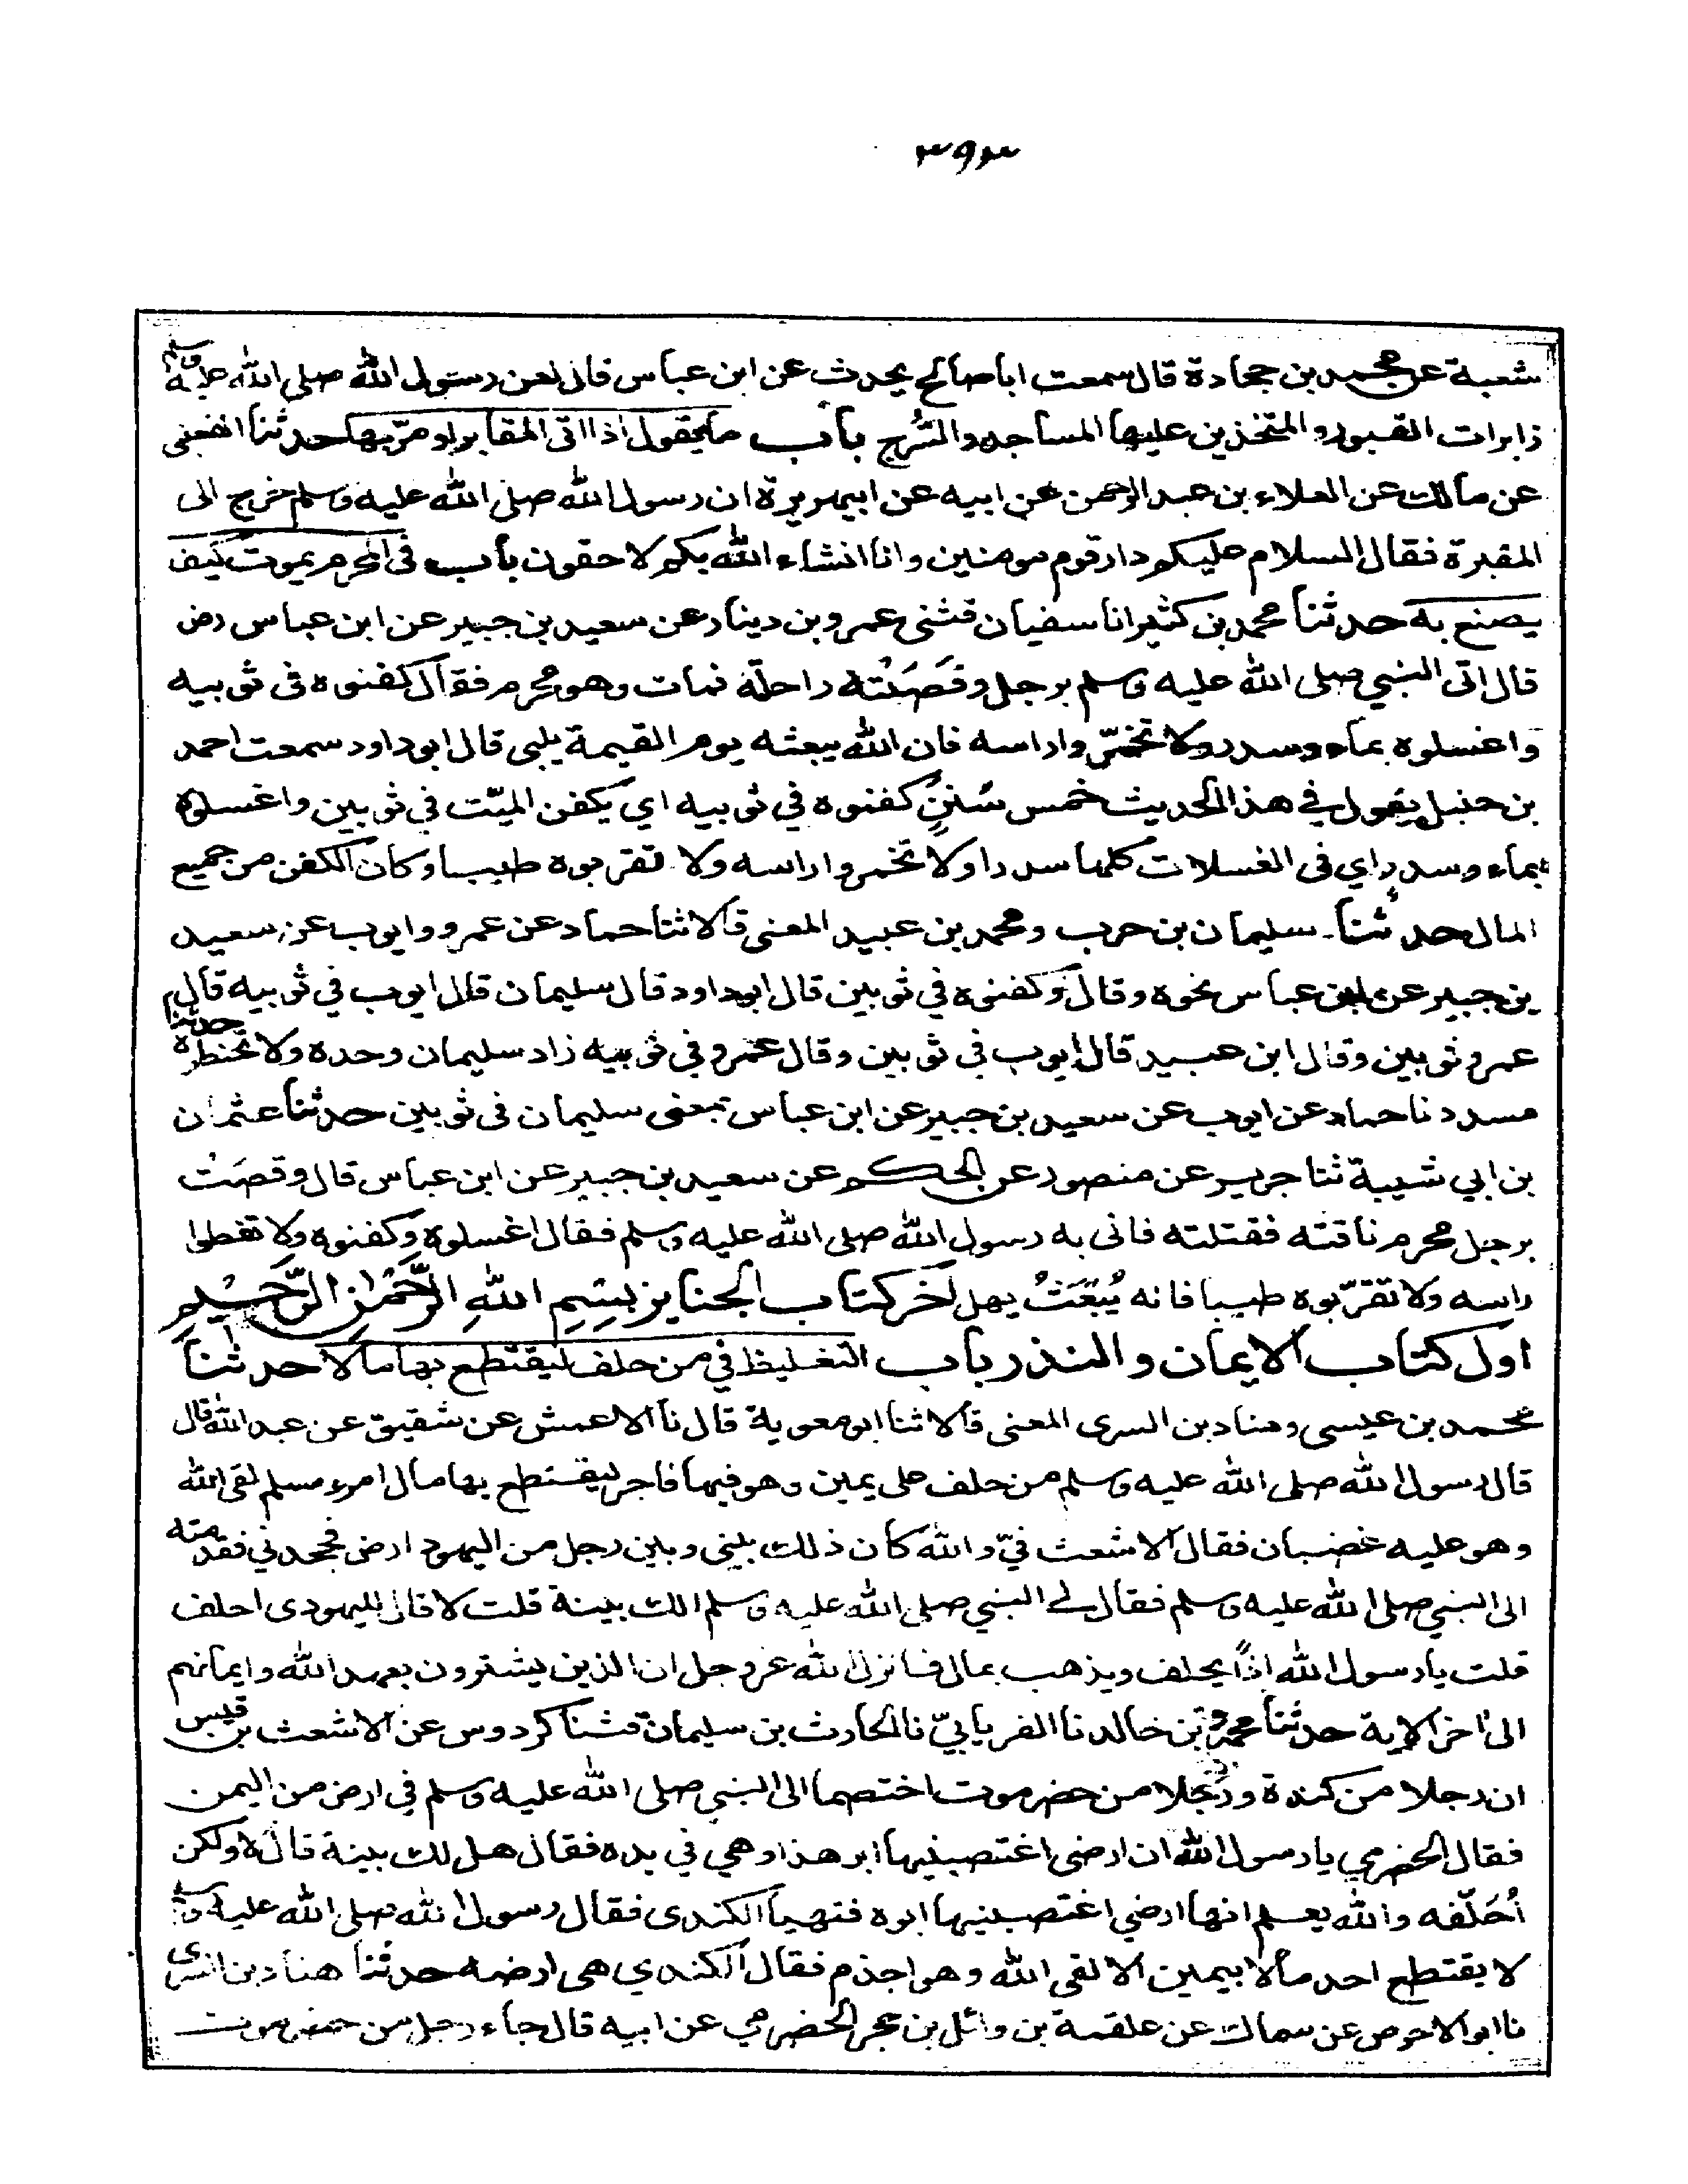 ٣٩٣
شعبة عن محمد بن جحادة قال سمعت اباصالح يحدث عن ابن عباس قال لعن رسول الله صلى الله عليه وسلم
زايرات القبور والمتخذين عليها المساجد والسُّرج باب ما يقول اذا اتى المقابر او مرّ بها حدثنا القعنبى
عن مالك عن العلاء بن عبد الرحمن عن ابيه عن ابيهريرة ان رسول الله صلى الله عليه وسلم خرج الى
المقبرة فقال السلام عليكم دار قوم مومنين وانا انشاء الله بكم لاحقون باب فى المحرم يموت كيف
يصنع به حدثنا محمد بن كثير انا سفيان قثنى عمرو بن دينار عن سعيد بن جبير عن ابن عباس رض
قال اتى النبي صلى الله عليه وسلم برجل وقَصَتْه راحلة فمات وهو محرم فقال كفنوه فى ثوبيه
واغسلوه بماء وسدر ولا تخمّروا راسه فان الله يبعثه يوم القيمة يلبى قال ابو داود سمعت احمد
بن حنبل يقول فى هذا الحديث خمس سُنَنٍ كفنوه في ثوبيه اي يكفن الميّت في ثوبين واغسلوه
بماء وسدر اي فى الغسلات كلها سدرا ولا تخمروا راسه ولا تقربوه طيبا وكان الكفن من جميع
المال حدثنا سليمان بن حرب ومحمد بن عبيد المعنى قالا ثنا حماد عن عمرو وايوب عن سعيد
بن جبير عن ابن عباس نحوه وقال وكفنوه في ثوبين قال ابوداود قال سليمان قال ايوب في ثوبيه قال
عمرو ثوبين وقال ابن عبيد قال ايوب في ثوبين وقال عمرو في ثوبيه زاد سليمان وحده ولا تحنطوه حدثنا
مسدد نا حماد عن ايوب عن سعيد بن جبير عن ابن عباس بمعنى سليمان فى ثوبين حدثنا عثمان
بن ابي شيبة ثنا جرير عن منصور عن الحكم عن سعيد بن جبير عن ابن عباس قال وقصَتْ
برجل محرم ناقته فقتلته فاتى به رسول الله صلى الله عليه وسلم فقال اغسلوه وكفنوه ولا تغطوا
راسه ولا تقرّبوه طيبا فانه يُبْعَثُ يهل اٰخر كتاب الجنايز بِسْمِ اللهِ الرَّحْمٰنِ الرَّحِيْمِ
اول كتاب الايمان والنذر باب التغليظ في من حلف ليقتطع بها مالا حدثنا
محمد بن عيسى وهناد بن السرى المعنى قالا ثنا ابو معوية قال نا الاعمش عن شقيق عن عبد الله قال
قال رسول الله صلى الله عليه وسلم من حلف على يمين وهو فيها فاجر ليقتطع بها مال امرء مسلم لقى الله
وهو عليه غضبان فقال الاشعث فيّ والله كان ذلك بيني وبين رجل من اليهود ارض فجحدني فقدمته
الى النبي صلى الله عليه وسلم فقال لي النبي صلى الله عليه وسلم الك بينة قلت لا قال لليهودى احلف
قلت يا رسول الله اذًا يحلف ويذهب بمالى فانزل الله عز وجل ان الذين يشترون بعهد الله وايمانهم
الى اٰخر الاية حدثنا محمود بن خالد نا الفريابيّ نا الحارث بن سليمان قثنا كردوس عن الاشعث بن قيس
ان رجلا من كندة ورَجلا من حضرموت اختصما الى النبي صلى الله عليه وسلم في ارض من اليمن
فقال الحضرمي يا رسول الله ان ارضى اغتصبنيها ابو هذا وهي في يده فقال هل لك بينة قال لا ولكن
اُحَلّفه والله يعلم انها ارضي اغتصبنيها ابوه فتهيا الكندى فقال رسول الله صلى الله عليه وسلم
لا يقتطع احد مالا بيمين الا لقى الله وهو اجذم فقال الكندي هى ارضه حدثنا هناد بن السرى
نا ابو الاحوص عن سماك عن علقمة بن وائل بن حجر الحضرمي عن ابيه قال جاء رجل من حضرموت